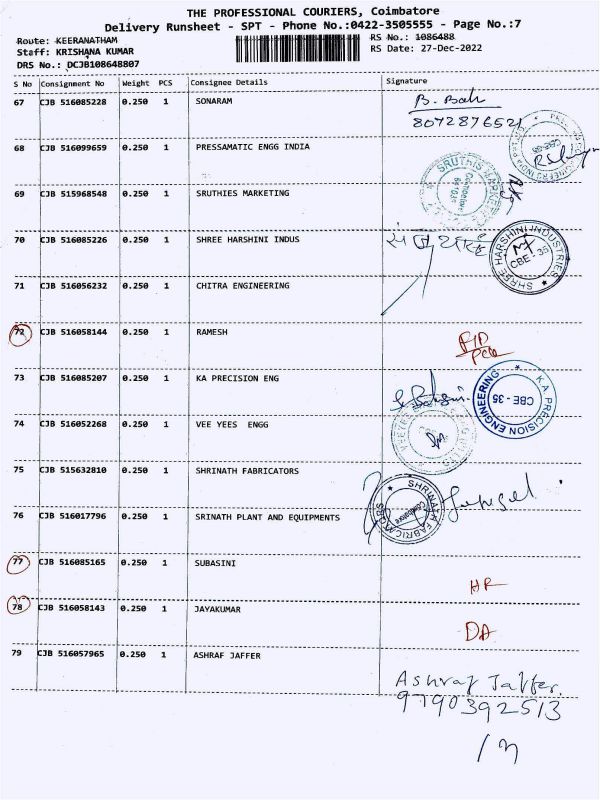 THE PROFESSIONAL COURIERS, Coimbatore
Delivery Runsheet - SPT - Phone No.:0422-3505555 - Page No.:7
Route: KEERANATHAM
RS No.: 1086488
Staff: KRISHANA KUMAR
RS Date: 27-Dec-2022
DRS No.: DCJB108648807
S No Consignment No Weight PCS Consignee Details Signature
67 CJB 516085228 0.250 1 SONARAM
8072876521
68 CJB 516099659 0.250 1 PRESSAMATIC ENGG INDIA
69 CJB 515968548 0.250 1 SRUTHIES MARKETING
70 CJB 516085226 0.250 1 SHREE HARSHINI INDUS
SHREE HARSHINI INDUSTRIES
CBE - 35
71 CJB 516056232 0.250 1 CHITRA ENGINEERING
72 CJB 516058144 0.250 1 RAMESH
73 CJB 516085207 0.250 1 KA PRECISION ENG
KA PRECISION ENGINEERING
CBE - 35
74 CJB 516052268 0.250 1 VEE YEES ENGG
75 CJB 515632810 0.250 1 SHRINATH FABRICATORS
SHRINATH FABRICATORS
Coimbatore
76 CJB 516017796 0.250 1 SRINATH PLANT AND EQUIPMENTS
77 CJB 516085165 0.250 1 SUBASINI
HR
78 CJB 516058143 0.250 1 JAYAKUMAR
DA
79 CJB 516057965 0.250 1 ASHRAF JAFFER
Ashraf Jaffer.
9790392513